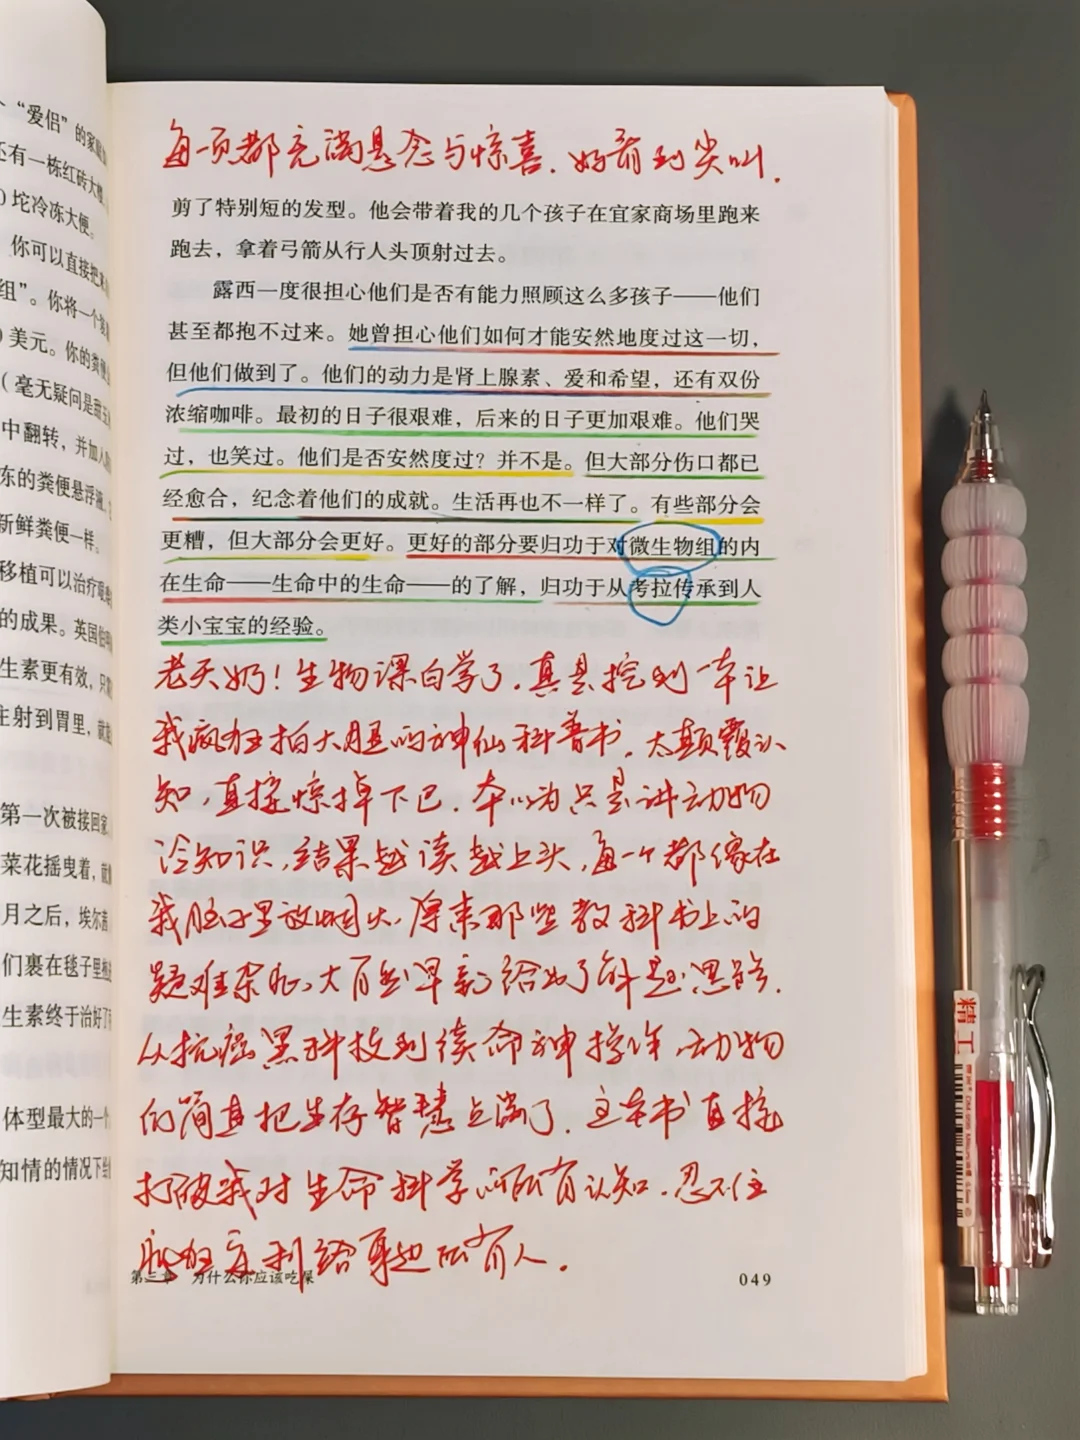 个“爱侣”的家
还有一栋红砖大楼
）坨冷冻大便。
你可以直接把
组”。你将一个
）美元。你的粪便
（毫无疑问是
中翻转，并加入
东的粪便悬浮液
新鲜粪便一样。
移植可以治疗
的成果。英国伯
生素更有效，只
注射到胃里，就
第一次被接回家
菜花摇曳着，就
月之后，埃尔
们裹在毯子里
生素终于治好了
体型最大的一个
知情的情况下给
每一页都充满悬念与惊喜，好看到尖叫，
剪了特别短的发型。他会带着我的几个孩子在宜家商场里跑来
跑去，拿着弓箭从行人头顶射过去。
露西一度很担心他们是否有能力照顾这么多孩子——他们
甚至都抱不过来。她曾担心他们如何才能安然地度过这一切，
但他们做到了。他们的动力是肾上腺素、爱和希望，还有双份
浓缩咖啡。最初的日子很艰难，后来的日子更加艰难。他们哭
过，也笑过。他们是否安然度过？并不是。但大部分伤口都已
经愈合，纪念着他们的成就。生活再也不一样了。有些部分会
更糟，但大部分会更好。更好的部分要归功于对微生物组的内
在生命——生命中的生命——的了解，归功于从考拉传承到人
类小宝宝的经验。
老天奶！生物课白学了，真是挖到一本让
我疯狂拍大腿的神仙科普书，太颠覆认
知，直接惊掉下巴，本以为只是讲动物
冷知识，结果越读越上头，每一个都像在
我脑子里放烟火，原来那些教科书上的
疑难杂症，大自然早就给出了解题思路，
从抗癌黑科技到续命神操作，动物
们简直把生存智慧点满了，这本书直接
打破我对生命科学的所有认知，忍不住
疯狂安利给身边所有人。
第三章 为什么你应该吃屎
049
精工